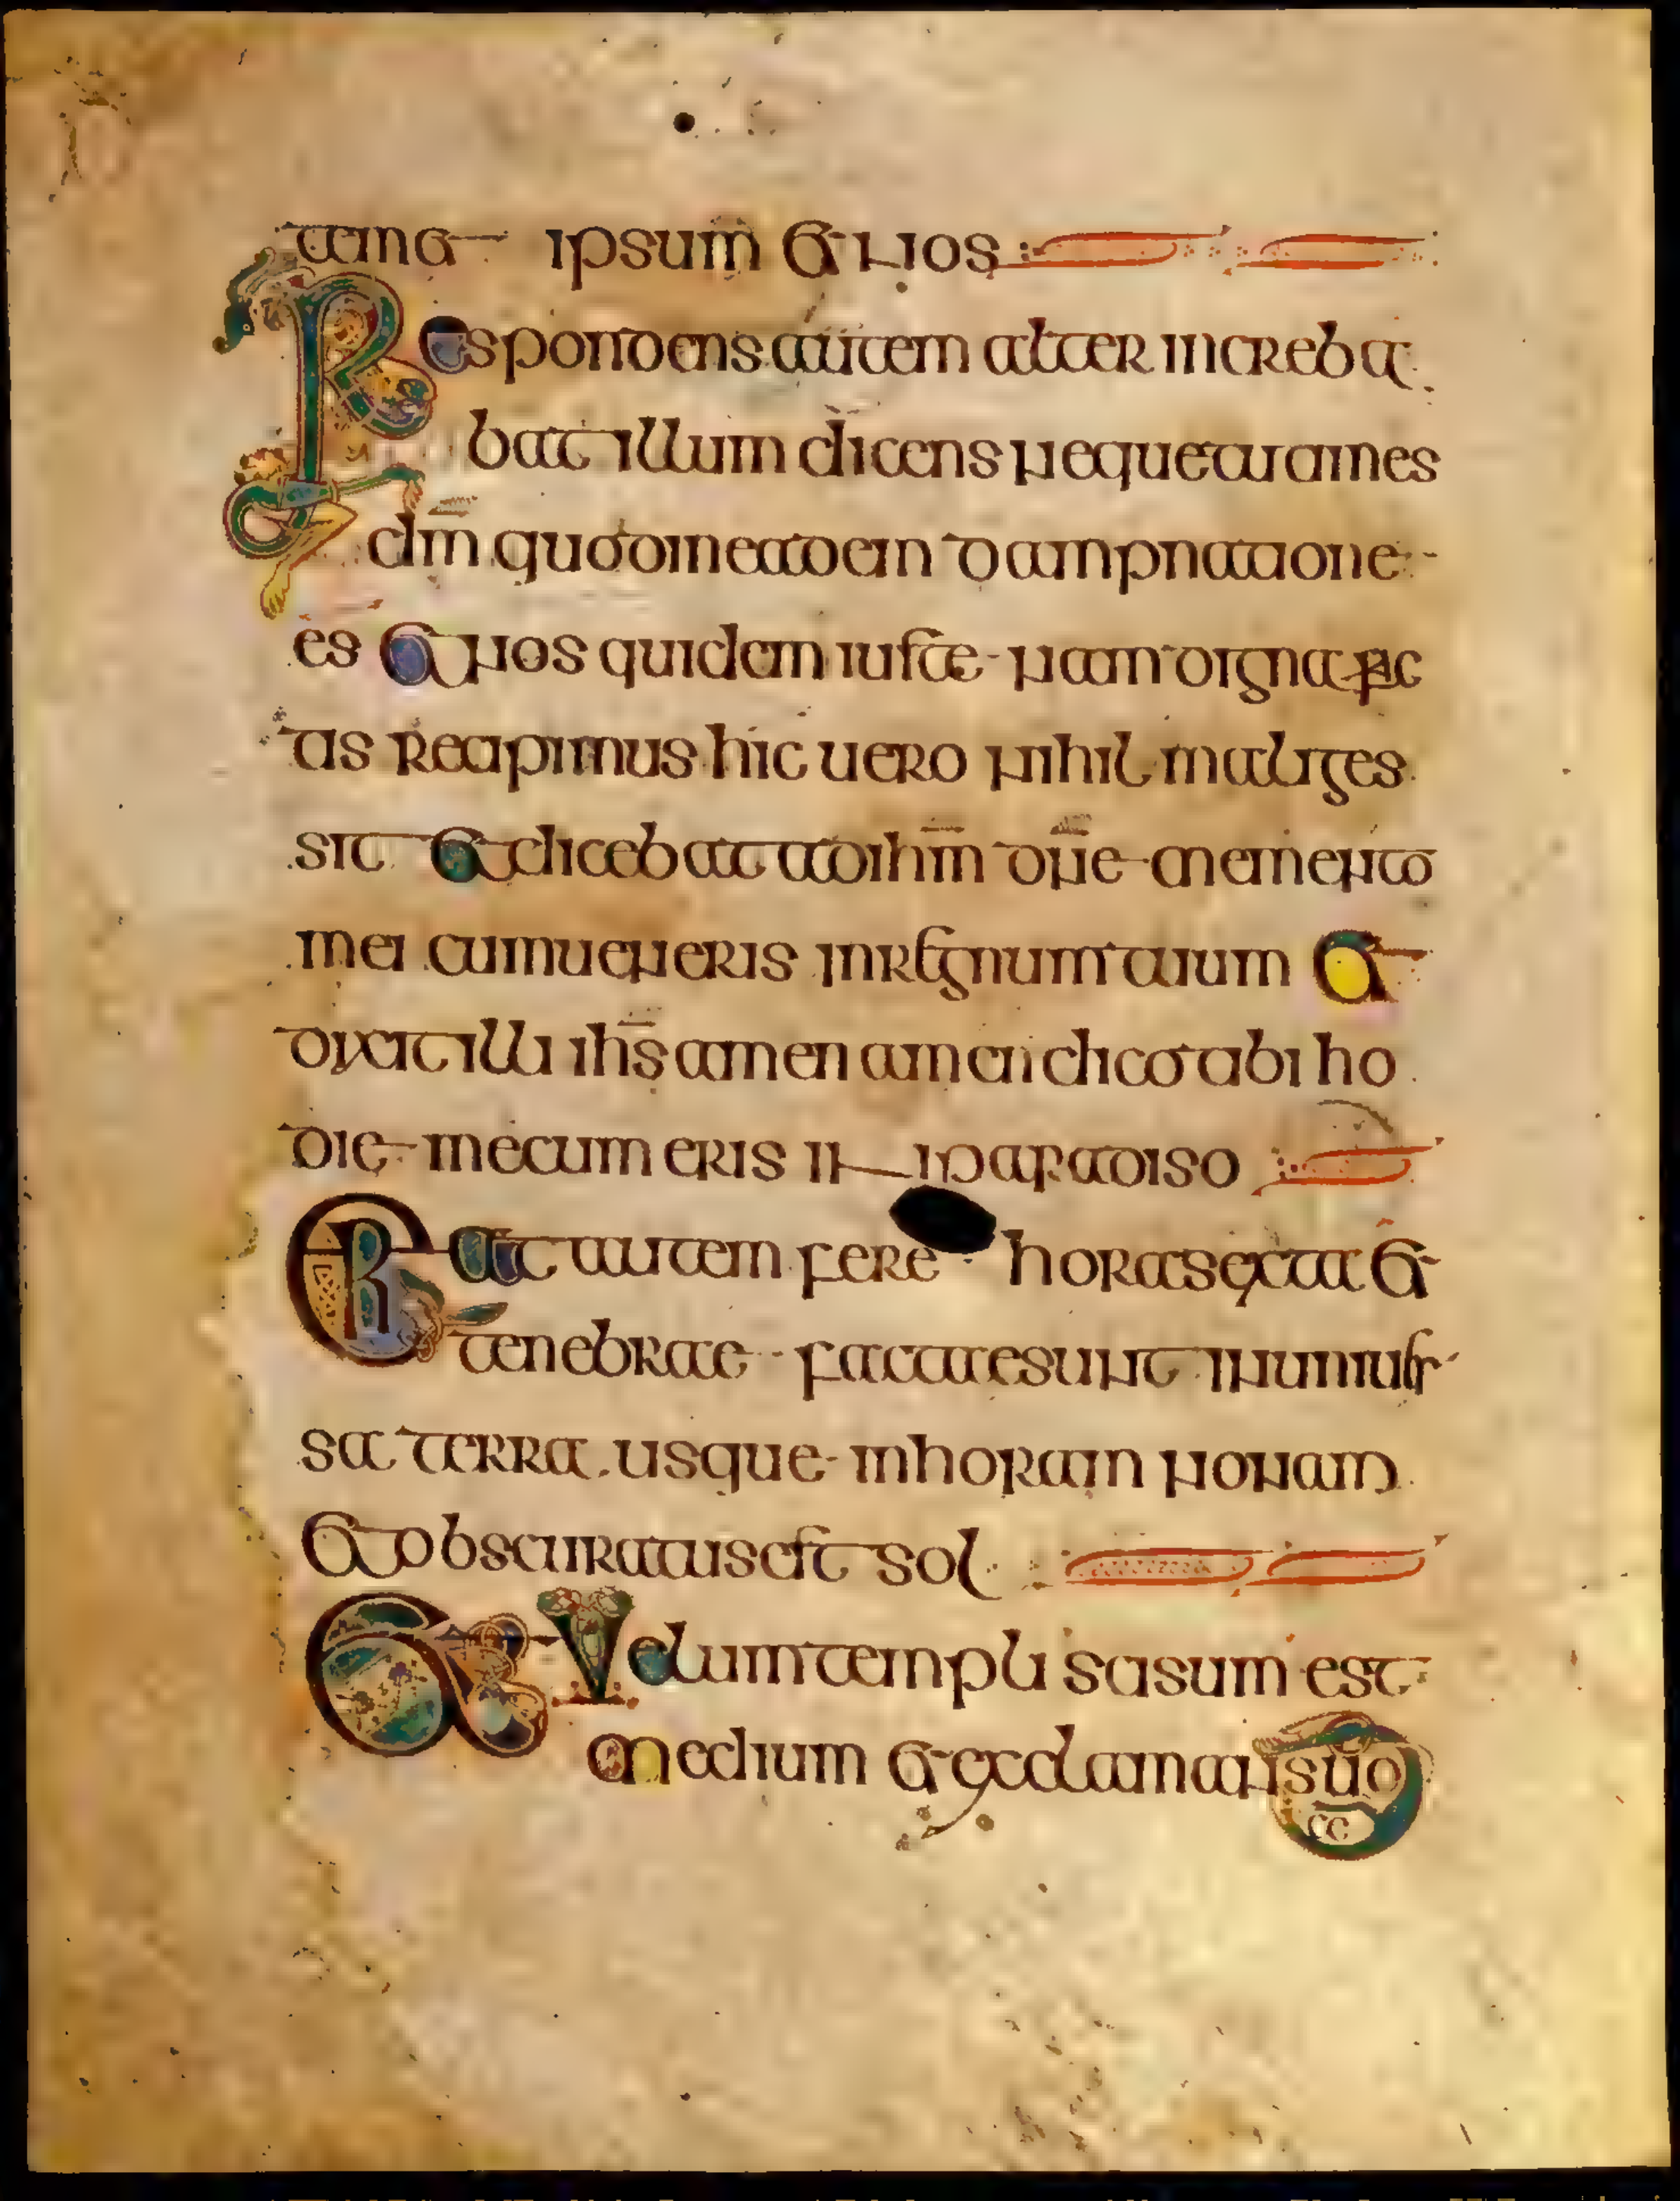 temet ipsum et nos
Respondens autem alter increba
bat illum dicens neque tu times
dm̅ quod in eadem dampnatione
es et nos quidem iuste nam digna fac
tis recipimus hic uero nihil mali ges
sit et dicebat ad ihm̅ dn̅e memento
mei cum ueneris in regnum tuum et
dixit illi ihs̅ amen amen dico tibi ho
die mecum eris in paradiso
Erat autem fere hora sexta et
tenebrae factae sunt in uniuer
sa terra usque in horam nonam
et obscuratus est sol
Et Velum templi scisum est
medium et exclamans uo
ce